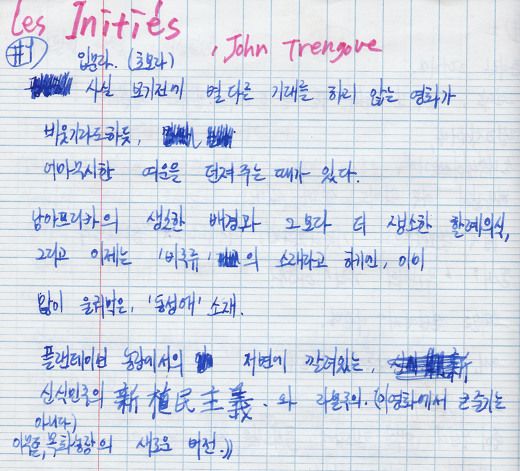 Les Initiés
#1
, John Trengove
입문자. (초보자)
사실 보기전에 별다른 기대를 하지 않는 영화가
비웃기라도하듯,
어마무시한 여운을 던져 주는 때가 있다.
남아프리카의 생소한 배경과 그보다 더 생소한 할례의식,
그리고 이제는 '비주류' 의 소재라고 하기엔, 이미
많이 울궈먹은, '동성애' 소재.
플랜테이션 농장에서의 저변에 깔려있는,
신식민주의 新植民主義. 와 (이영화에서 큰 줄기는
아니다)
목화농장의 새로운 버전.))